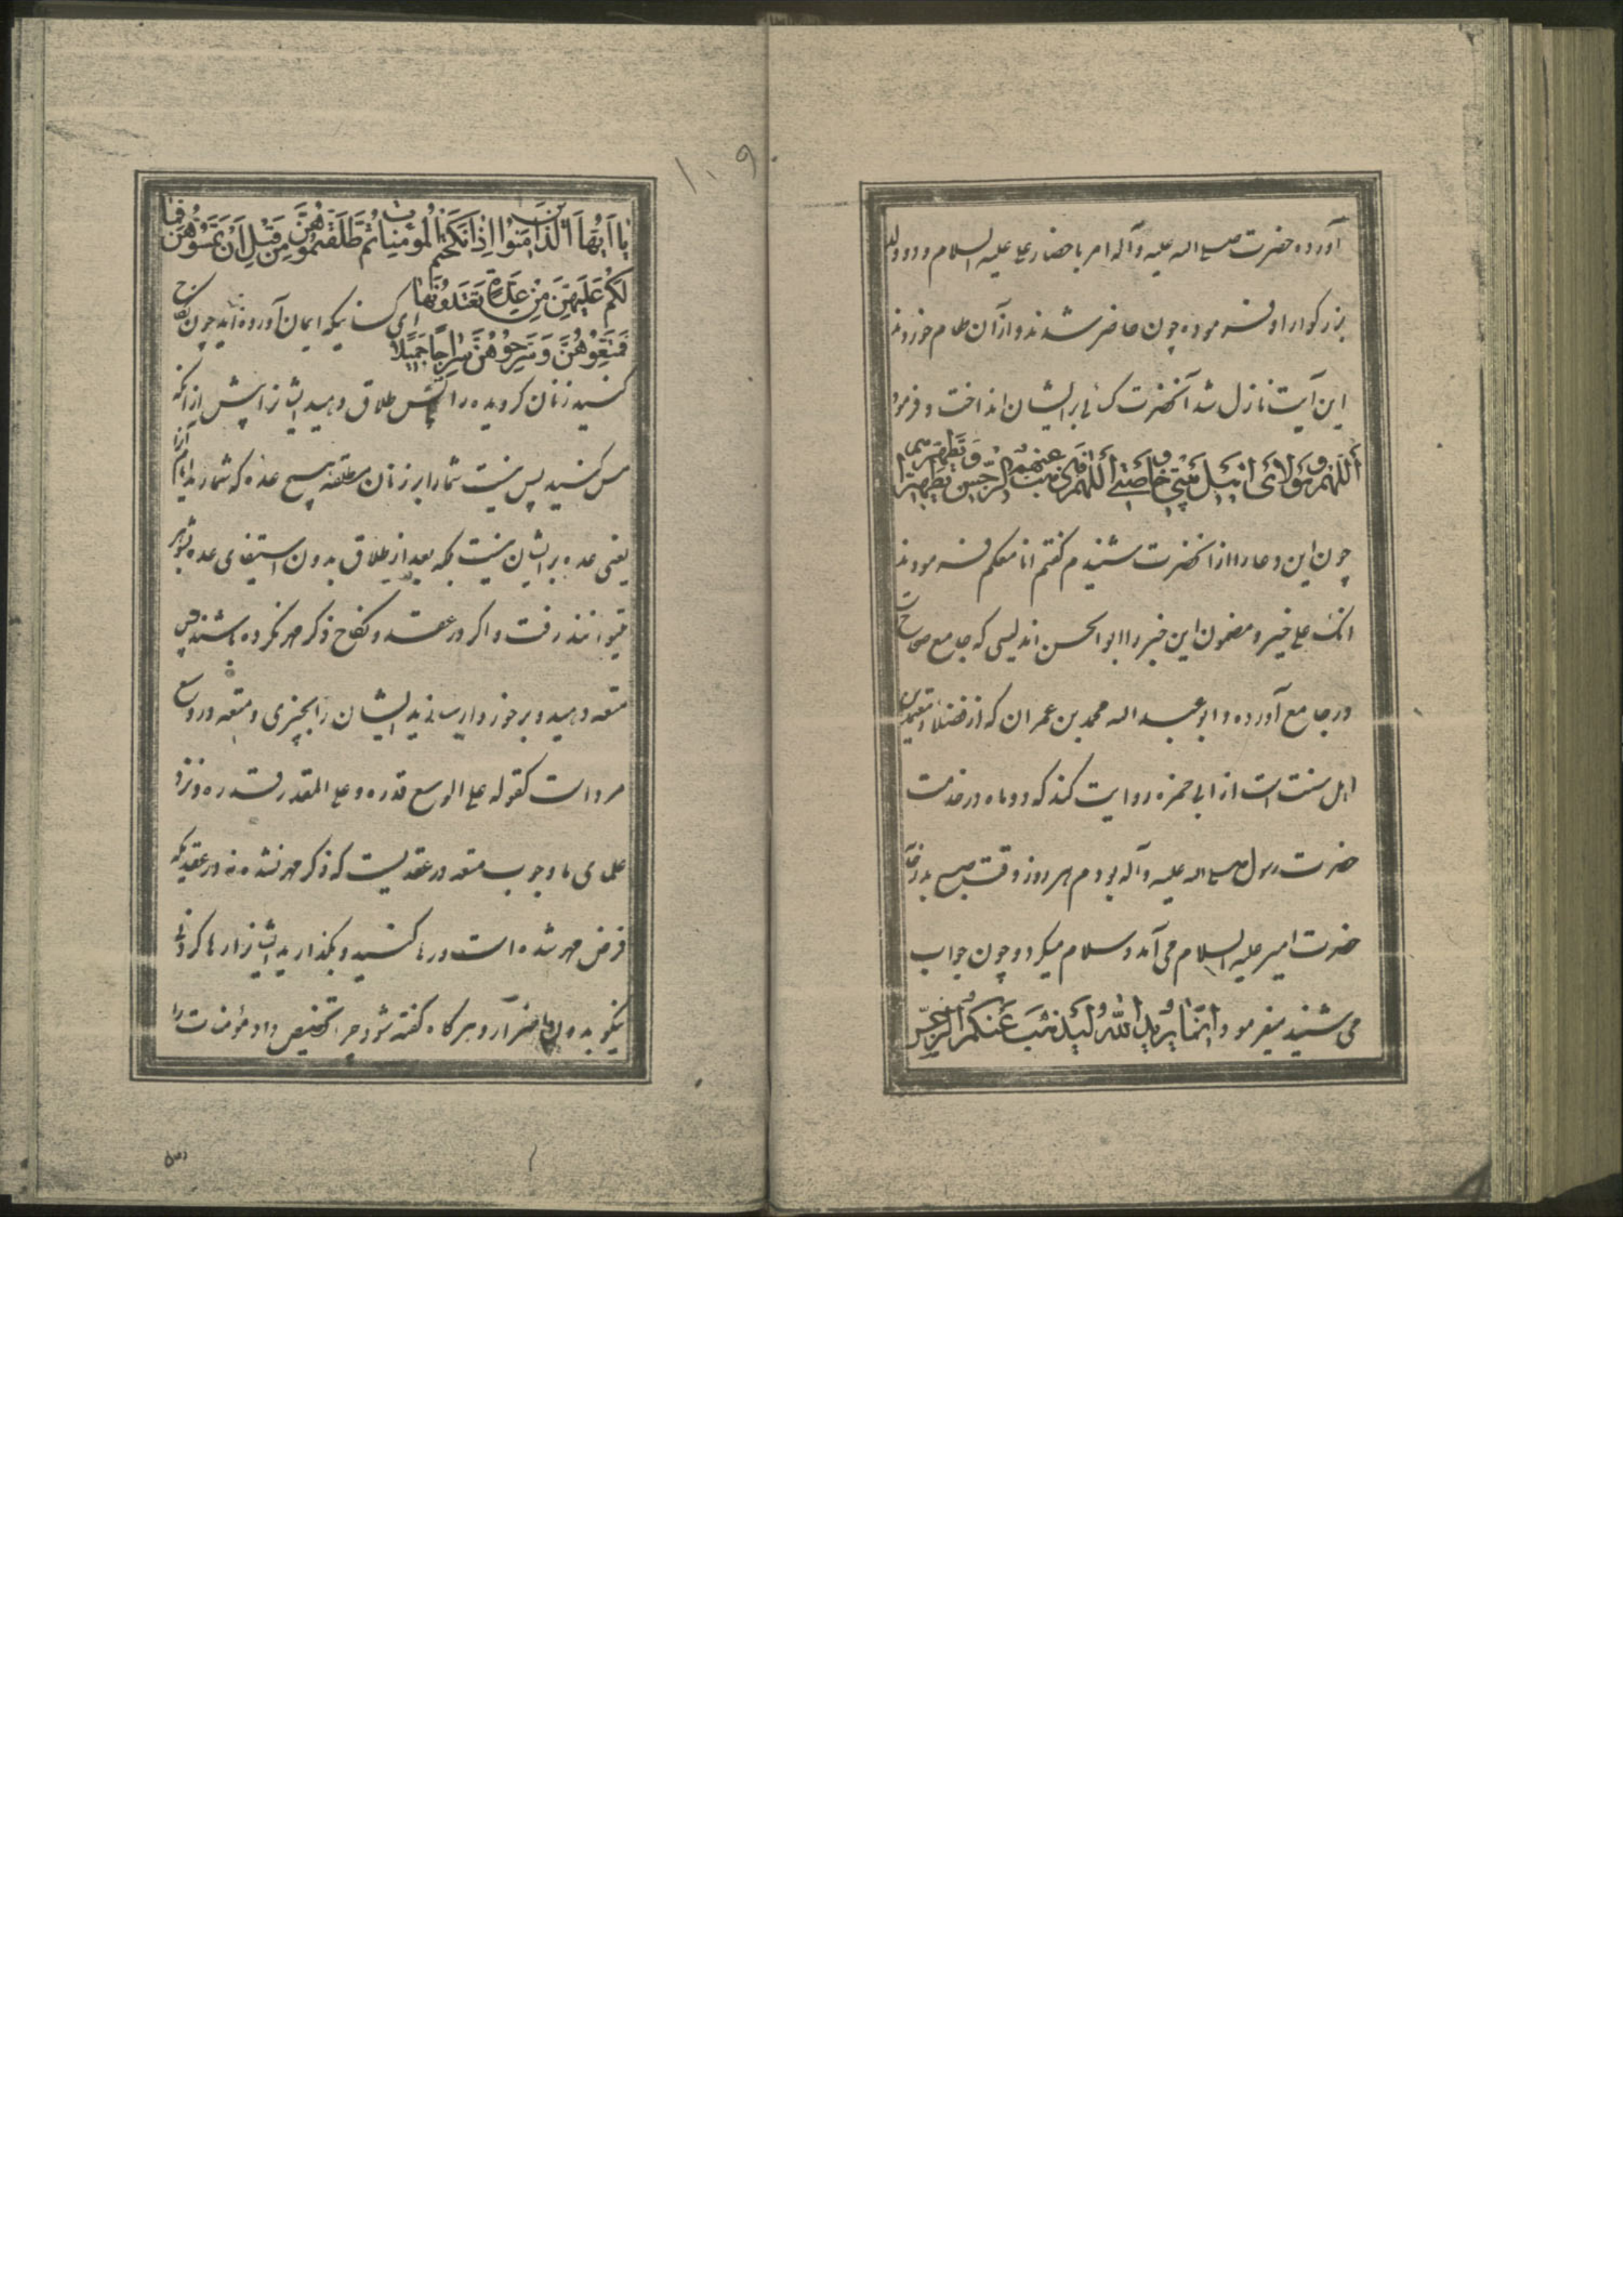 آورده حضرت صلی الله علیه و آله امر باحضار علی علیه السلام و دو ولد
بزرکوار او فرموده چون حاضر شدند و از آن طعام خوردند
این آیت نازل شد آنحضرت کسائی بر ایشان انداخت و فرمود
أللهم هؤلاء اهل بیتی و خاصتی أللهم فاذهب عنهم الرجس و تطهرهم تطهیرا
چون این دعا را از آنحضرت شنیدم کفتم انا معکم فرمودند
انک علی خیر و مضمون این خبر را ابو الحسن اندلسی که جامع صحاح است
در جامع آورده و ابو عبد الله محمد بن عمران که از فضلا و متقدمین
اهل سنت است از ابی حمزه روایت کند که دو ماه در خدمت
حضرت رسول صلی الله علیه و آله بودم هر روز وقت صبح بدر خانه
حضرت امیر علیه السلام می آمد و سلام میکرد و چون جواب
می شنید میفرمود انما یرید الله لیذهب عنکم الرجس
۱۰۹
یا ایها الذین امنوا اذا نکحتم المؤمنات ثم طلقتموهن من قبل ان تمسوهن فما
لکم علیهن من عدة تعتدونها
فمتعوهن و سرحوهن سراحا جمیلا
ای کسانیکه ایمان آورده اید چون نکاح
کنسید زنان کرویده را پس طلاق دهید ایشانرا پیش از انکه
مس کنید پس نیست شما را بر زنان مطلقه هیچ عده که شمارید ایام آنرا
یعنی عده بر ایشان نیست بلکه بعد از طلاق بدون استیفای عده بشوهر
میتوانند رفت و اکر در عقد و نکاح ذکر مهر نکرده باشند پس
متعه دهید و برخوردار سازید ایشان را بچیزی و متعه در وسع
مرد است کقوله علی الوسع قدره و علی المقدر قدره و نزد
علمای ما وجوب متعه در عقدیست که ذکر مهر نشده نه در عقدیکه
فرض مهر شده است و رها کنید و بکذارید ایشانرا رها کردنی
نیکو بدون ضرار و هر کاه کفته شود چرا تخصیص داد مؤمنات را